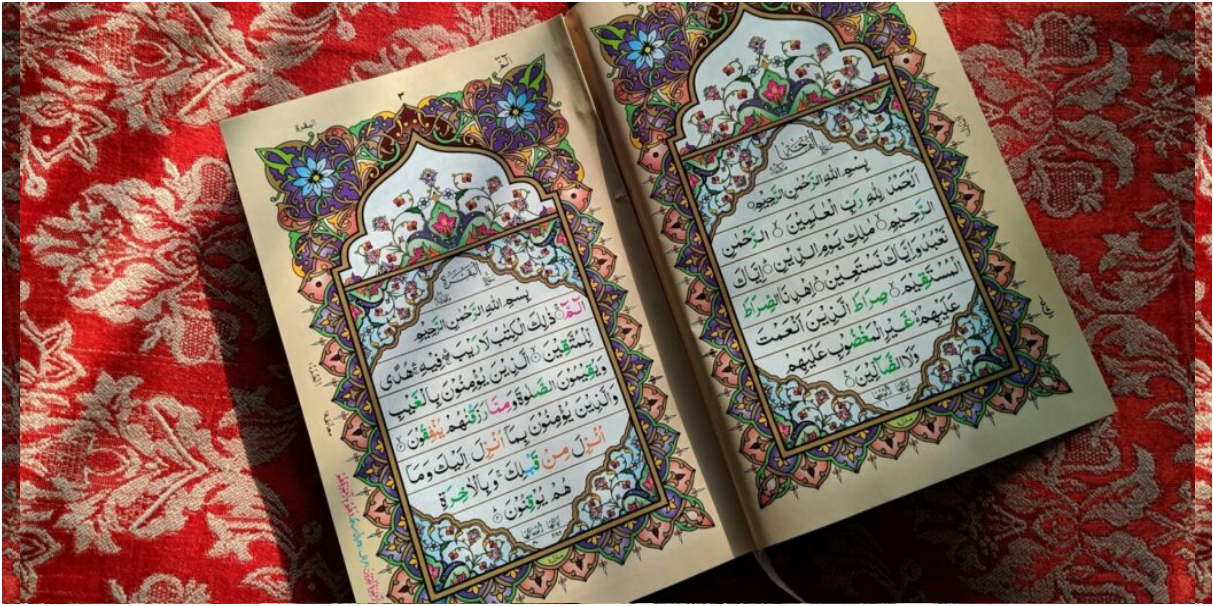 الفاتحة
بِسْمِ اللهِ الرَّحْمٰنِ الرَّحِيْمِ
اَلْحَمْدُ لِلّٰهِ رَبِّ الْعٰلَمِيْنَ ۙ الرَّحْمٰنِ
الرَّحِيْمِ ۙ مٰلِكِ يَوْمِ الدِّيْنِ ؕ اِيَّاكَ
نَعْبُدُ وَاِيَّاكَ نَسْتَعِيْنُ ؕ اِهْدِنَا الصِّرَاطَ
الْمُسْتَقِيْمَ ۙ صِرَاطَ الَّذِيْنَ اَنْعَمْتَ
عَلَيْهِمْ ۙ غَيْرِ الْمَغْضُوْبِ عَلَيْهِمْ
وَلَا الضَّآلِّيْنَ
٣
البقرة
البقرة
بِسْمِ اللهِ الرَّحْمٰنِ الرَّحِيْمِ
الٓمّٓ ۚ ذٰلِكَ الْكِتٰبُ لَا رَيْبَ ۛ فِيْهِ ۛ هُدًى
لِّلْمُتَّقِيْنَ ۙ الَّذِيْنَ يُؤْمِنُوْنَ بِالْغَيْبِ
وَيُقِيْمُوْنَ الصَّلٰوةَ وَمِمَّا رَزَقْنٰهُمْ يُنْفِقُوْنَ ۙ
وَالَّذِيْنَ يُؤْمِنُوْنَ بِمَآ اُنْزِلَ اِلَيْكَ وَمَآ
اُنْزِلَ مِنْ قَبْلِكَ ۚ وَبِالْاٰخِرَةِ
هُمْ يُوْقِنُوْنَ